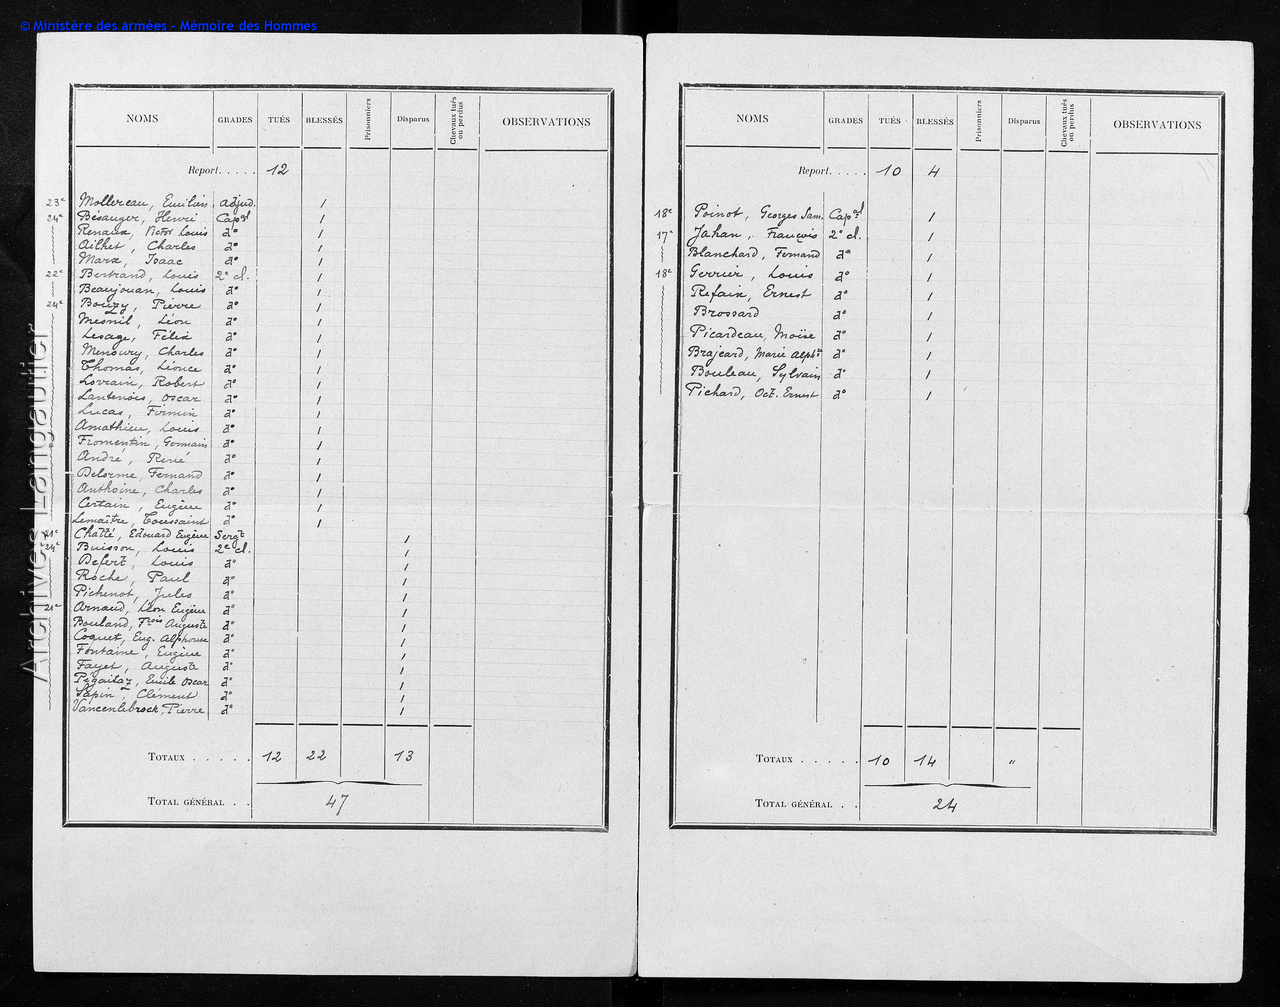 © Ministère des armées - Mémoire des Hommes
Archives Langautier
NOMS GRADES TUÉS BLESSÉS Prisonniers Disparus Chevaux tués ou perdus OBSERVATIONS
Report. . . . . 12
23e Mollereau, Emilien Adjud. 1
24e Besauger, Henri Capal 1
Renaux, Victor Louis do 1
Ailhet, Charles do 1
Marx, Isaac do 1
22e Bertrand, Louis 2e cl. 1
Beaujouan, Louis do 1
24e Bouzy, Pierre do 1
Mesnil, Léon do 1
Lesage, Félix do 1
Menoury, Charles do 1
Thomas, Léonce do 1
Lorrain, Robert do 1
Lantenois, Oscar do 1
Lucas, Firmin do 1
Amathieu, Louis do 1
Fromentin, Germain do 1
André, René do 1
Delorme, Fernand do 1
Anthoine, Charles do 1
Certain, Eugène do 1
Lemaître, Toussaint do 1
21e Chatté, Edouard Eugène Sergt 1
24e Buisson, Louis 2e cl. 1
Defert, Louis do 1
Roche, Paul do 1
Pichenot, Jules do 1
21e Arnaud, Léon Eugène do 1
Bouland, Frois Auguste do 1
Coquet, Eug. Alphonse do 1
Fontaine, Eugène do 1
Fayet, Auguste do 1
Pégaitaz, Emile Oscar do 1
Sapin, Clément do 1
Vancenlebrock, Pierre do 1
TOTAUX . . . . . 12 22 13
TOTAL GÉNÉRAL . . 47
NOMS GRADES TUÉS BLESSÉS Prisonniers Disparus Chevaux tués ou perdus OBSERVATIONS
Report. . . . . 10 4
18e Poinot, Georges Sam. Capal 1
17e Jahan, François 2e cl. 1
Blanchard, Fernand do 1
18e Gerrier, Louis do 1
Refaix, Ernest do 1
Brossard do 1
Picardeau, Moïse do 1
Brajeard, Marie Alphse do 1
Bouleau, Sylvain do 1
Pichard, Oct. Ernest do 1
TOTAUX . . . . . 10 14 "
TOTAL GÉNÉRAL . . 24